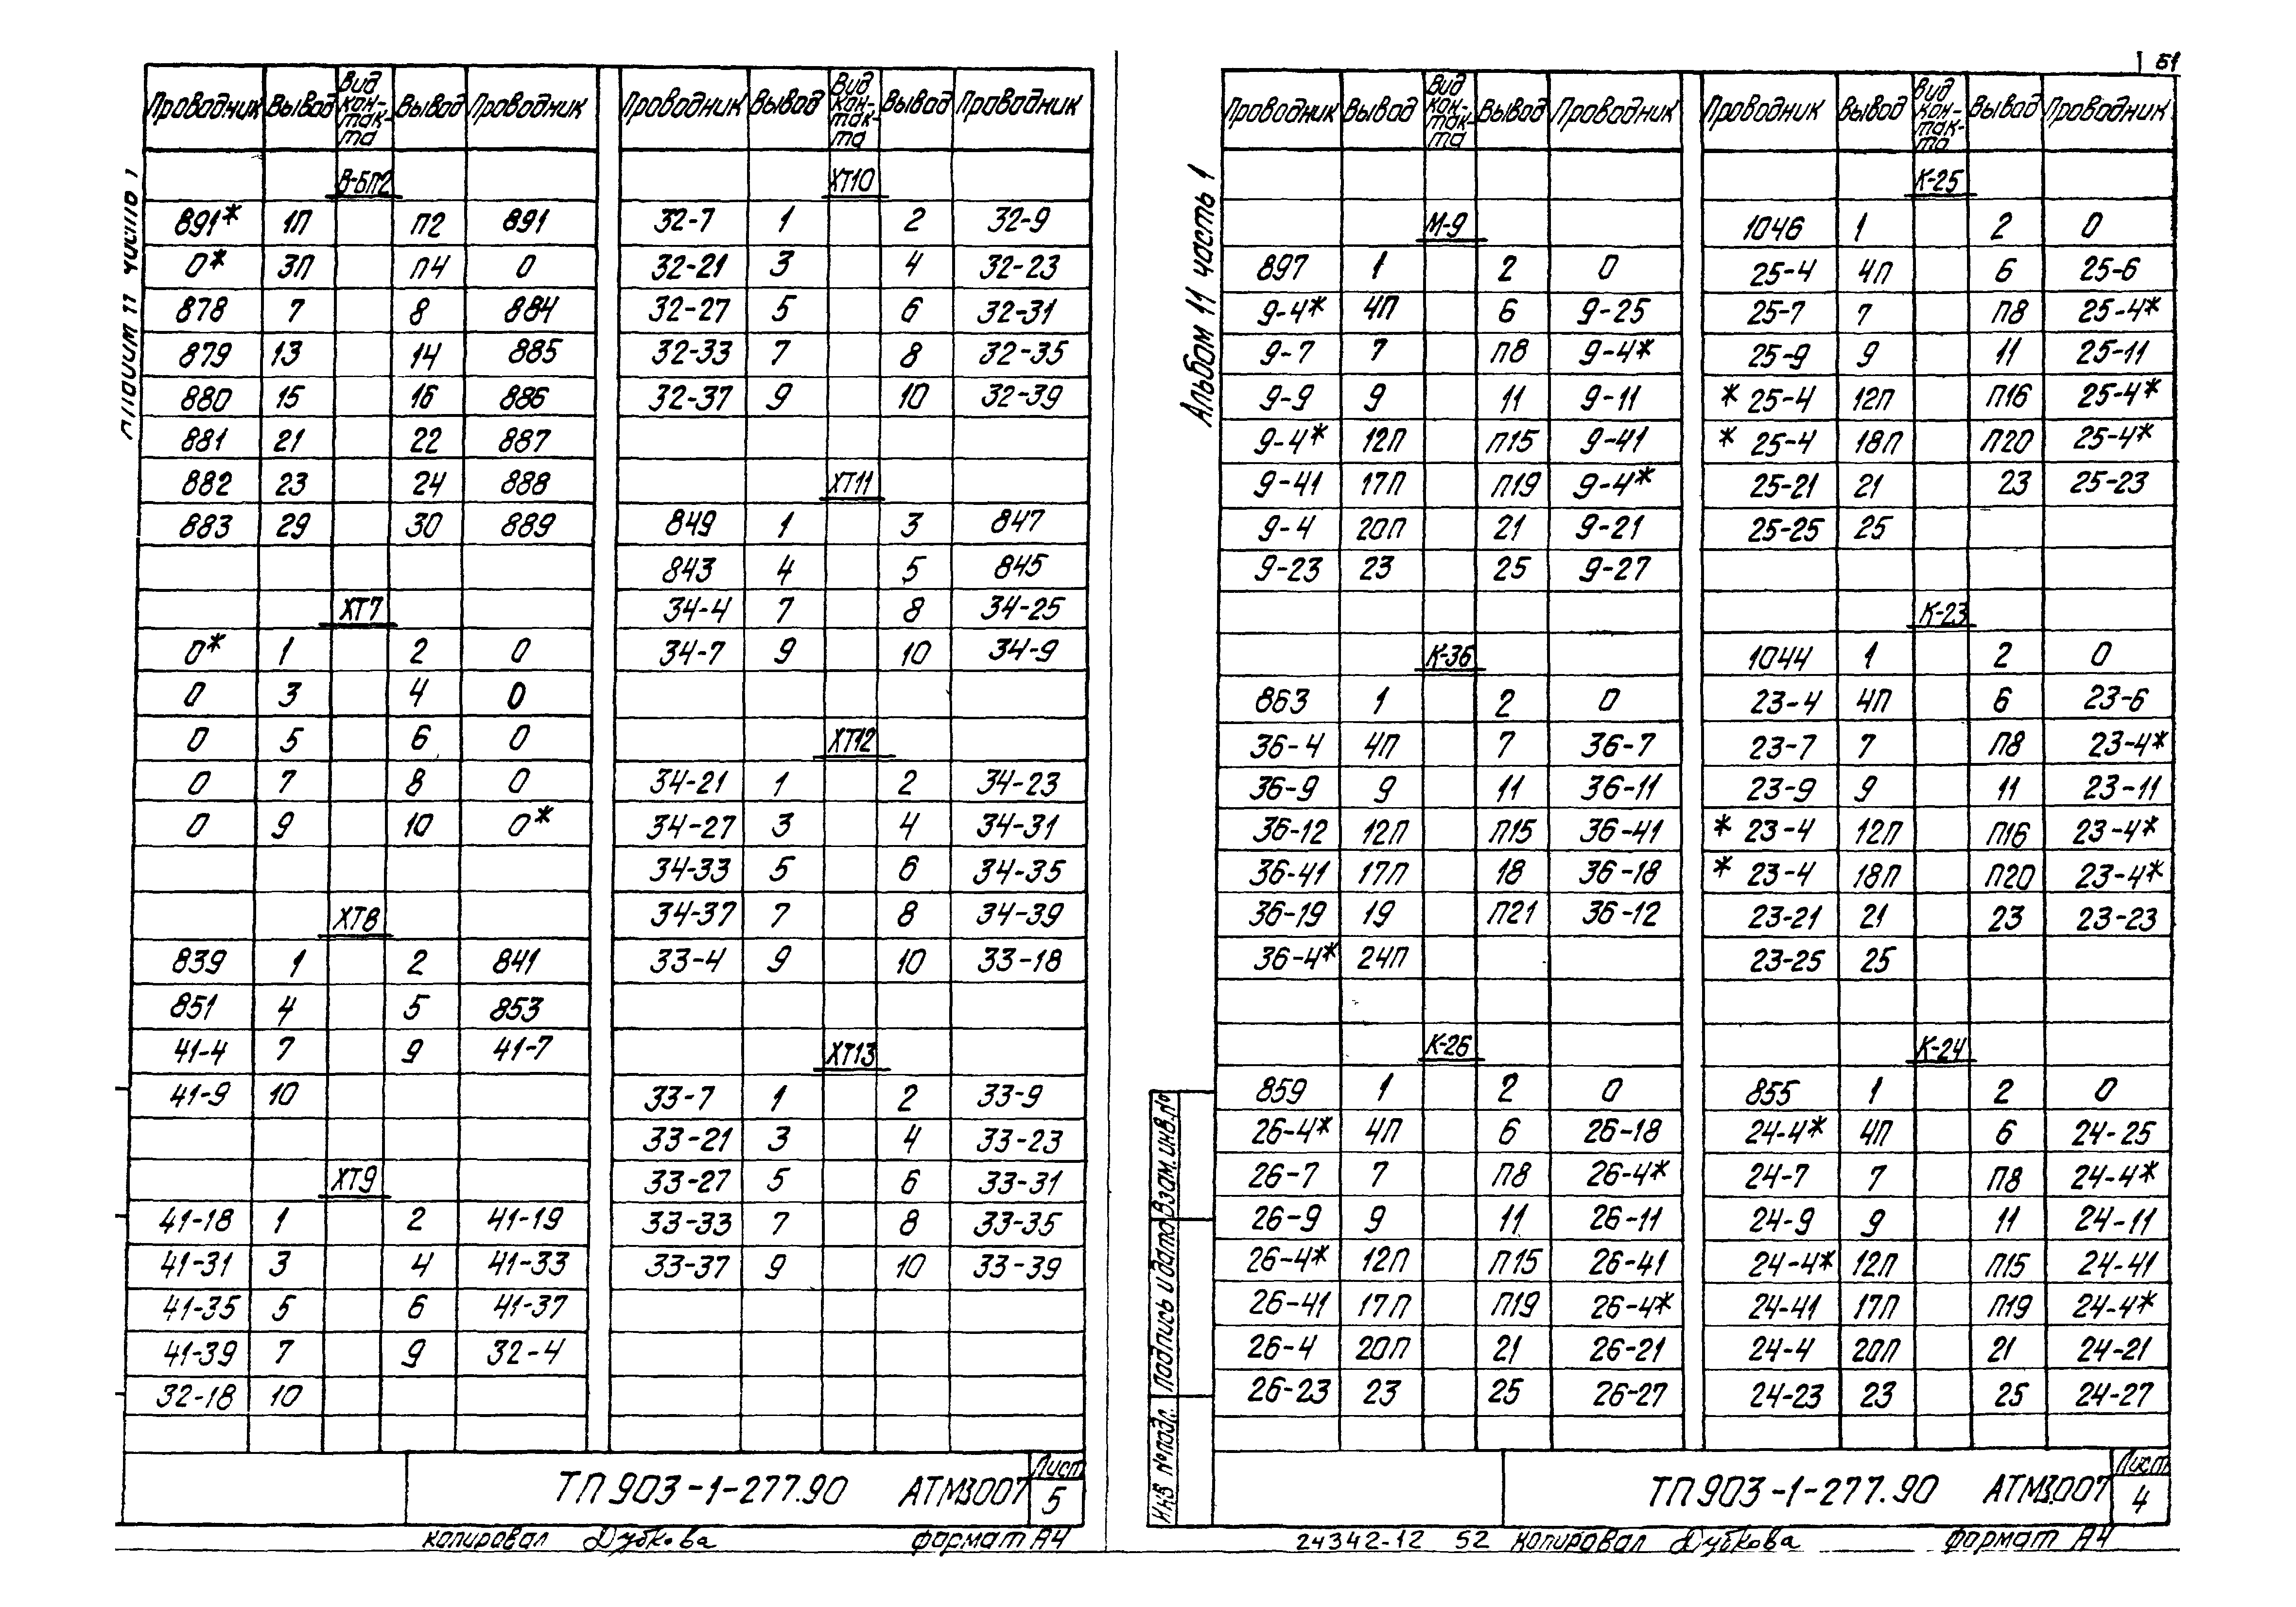 51
Альбом 11 часть 1
Проводник Вывод Вид контакта Вывод Проводник
В-БП2
891* 1П П2 891
0* 3П П4 0
878 7 8 884
879 13 14 885
880 15 16 886
881 21 22 887
882 23 24 888
883 29 30 889
ХТ7
0* 1 2 0
0 3 4 0
0 5 6 0
0 7 8 0
0 9 10 0*
ХТ8
839 1 2 841
851 4 5 853
41-4 7 9 41-7
41-9 10
ХТ9
41-18 1 2 41-19
41-31 3 4 41-33
41-35 5 6 41-37
41-39 7 9 32-4
32-18 10
Проводник Вывод Вид контакта Вывод Проводник
ХТ10
32-7 1 2 32-9
32-21 3 4 32-23
32-27 5 6 32-31
32-33 7 8 32-35
32-37 9 10 32-39
ХТ11
849 1 3 847
843 4 5 845
34-4 7 8 34-25
34-7 9 10 34-9
ХТ12
34-21 1 2 34-23
34-27 3 4 34-31
34-33 5 6 34-35
34-37 7 8 34-39
33-4 9 10 33-18
ХТ13
33-7 1 2 33-9
33-21 3 4 33-23
33-27 5 6 33-31
33-33 7 8 33-35
33-37 9 10 33-39
ТП 903-1-277.90 АТМ3.007
Лист
5
Копировал Дубкова формат А4
Альбом 11 часть 1
Проводник Вывод Вид кон-так-та Вывод Проводник
М-9
897 1 2 0
9-4* 4П 6 9-25
9-7 7 П8 9-4*
9-9 9 11 9-11
9-4* 12П П15 9-41
9-41 17П П19 9-4*
9-4 20П 21 9-21
9-23 23 25 9-27
К-36
863 1 2 0
36-4 4П 7 36-7
36-9 9 11 36-11
36-12 12П П15 36-41
36-41 17П 18 36-18
36-19 19 П21 36-12
36-4* 24П
К-26
859 1 2 0
26-4* 4П 6 26-18
26-7 7 П8 26-4*
26-9 9 11 26-11
26-4* 12П П15 26-41
26-41 17П П19 26-4*
26-4 20П 21 26-21
26-23 23 25 26-27
Проводник Вывод Вид кон-так-та Вывод Проводник
К-25
1046 1 2 0
25-4 4П 6 25-6
25-7 7 П8 25-4*
25-9 9 11 25-11
* 25-4 12П П16 25-4*
* 25-4 18П П20 25-4*
25-21 21 23 25-23
25-25 25
К-23
1044 1 2 0
23-4 4П 6 23-6
23-7 7 П8 23-4*
23-9 9 11 23-11
* 23-4 12П П16 23-4*
* 23-4 18П П20 23-4*
23-21 21 23 23-23
23-25 25
К-24
855 1 2 0
24-4* 4П 6 24-25
24-7 7 П8 24-4*
24-9 9 11 24-11
24-4* 12П П15 24-41
24-41 17П П19 24-4*
24-4 20П 21 24-21
24-23 23 25 24-27
Инв № подл. Подпись и дата Взам. инв. №
ТП 903-1-277.90 АТМ3.007
Лист
4
24342-12 52 Копировал Дубкова формат А4